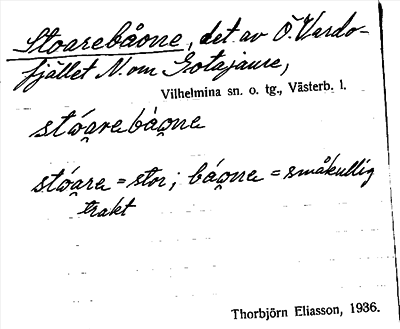 Stoarebåone, det. av Ö. Vardo-
fjället N. om Gotajaure,
Vilhelmina sn. o. tg., Västerb. l.
stóarebáọne
stóare = stor; báọne = småkullig
trakt
Thorbjörn Eliasson, 1936.